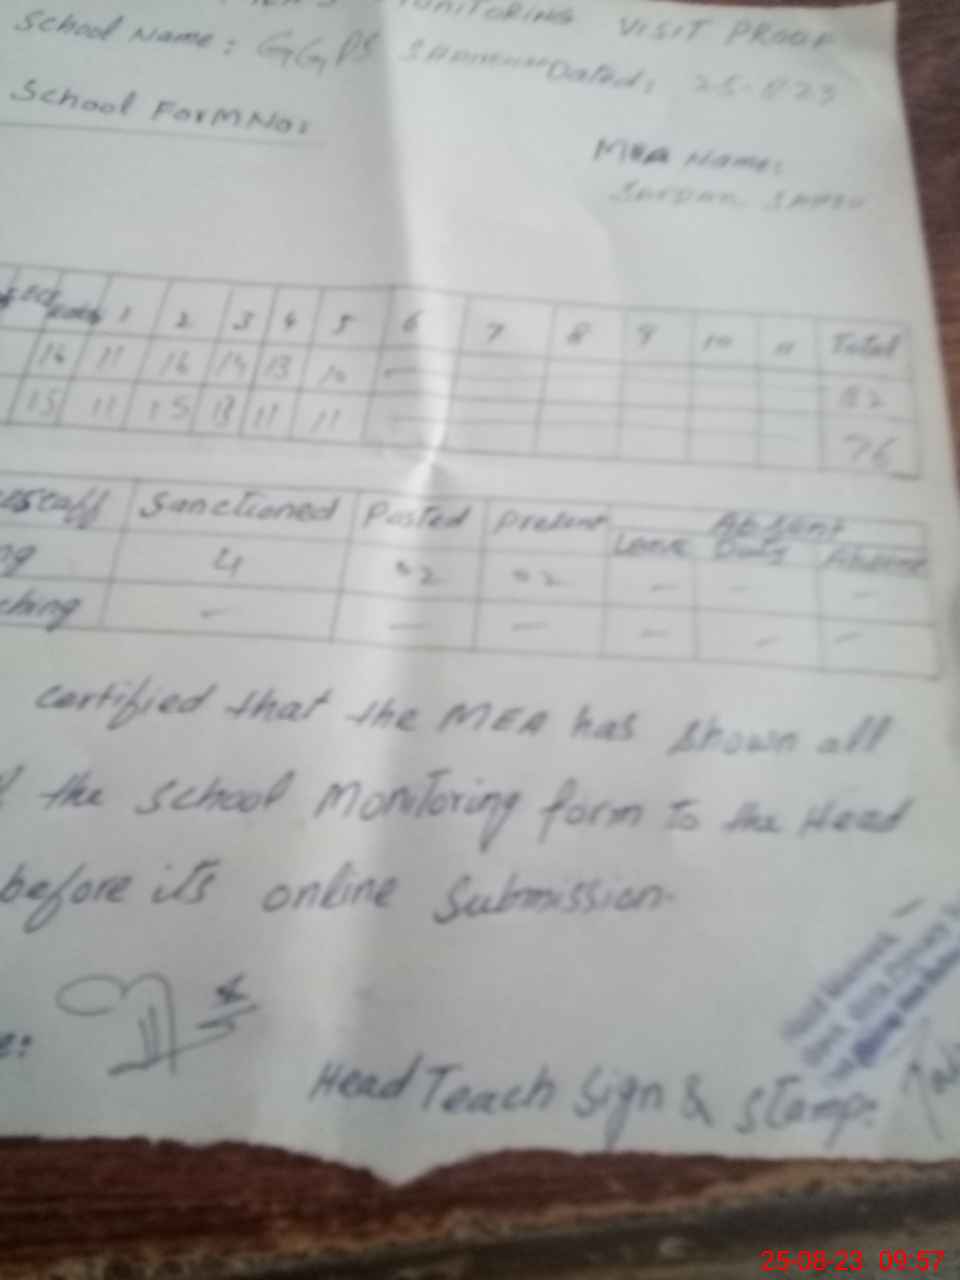 MONITORING VISIT PROOF
School Name: GGPS Dated: 25-8-23
School Form No:
MEA Name:
1 2 3 4 5 6 7 8 9 10 11 Total
16 11 16 13 10 — 82
15 11 15 13 11 11 76
Staff Sanctioned Posted Present Absent
Leave Duty Absent
ng 4 02 02 — — —
ching — — — — — —
certified that the MEA has shown all
the school Monitoring form to the Head
before its online Submission.
e:
Head Teach Sign & Stamp:
25-08-23 09:57